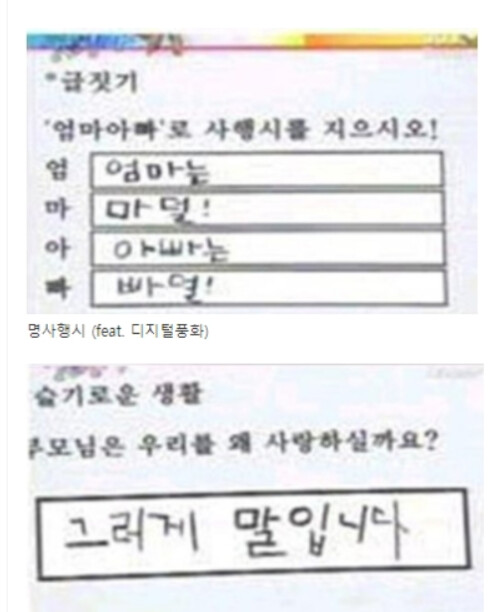 *글짓기
'엄마아빠'로 사행시를 지으시오!
엄 엄마는
마 마덜!
아 아빠는
빠 빠덜!
명사행시 (feat. 디지털풍화)
슬기로운 생활
부모님은 우리를 왜 사랑하실까요?
그러게 말입니다